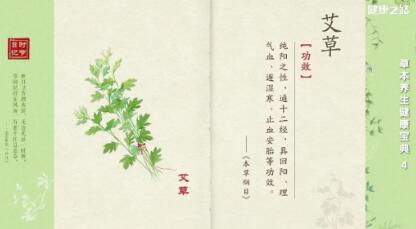 健康之路
草本养生健康宝典 4
艾草
【功效】
纯阳之性，通十二经，具回阳、理
气血、逐湿寒、止血安胎等功效。
——《本草纲目》
艾草
时节
日记